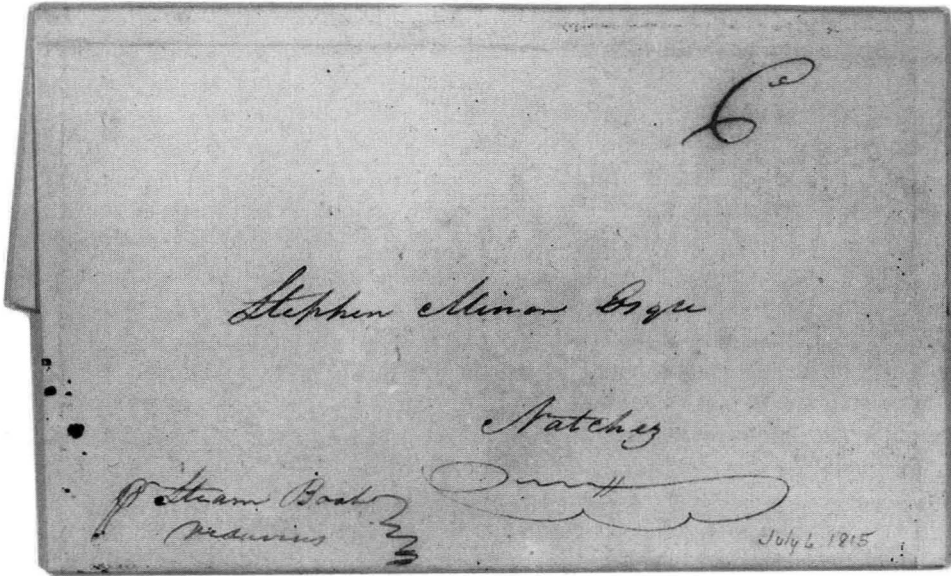 6
Stephen Minor Esqre
Natchez
pr Steam Boat
Vesuvius
July 6 1815